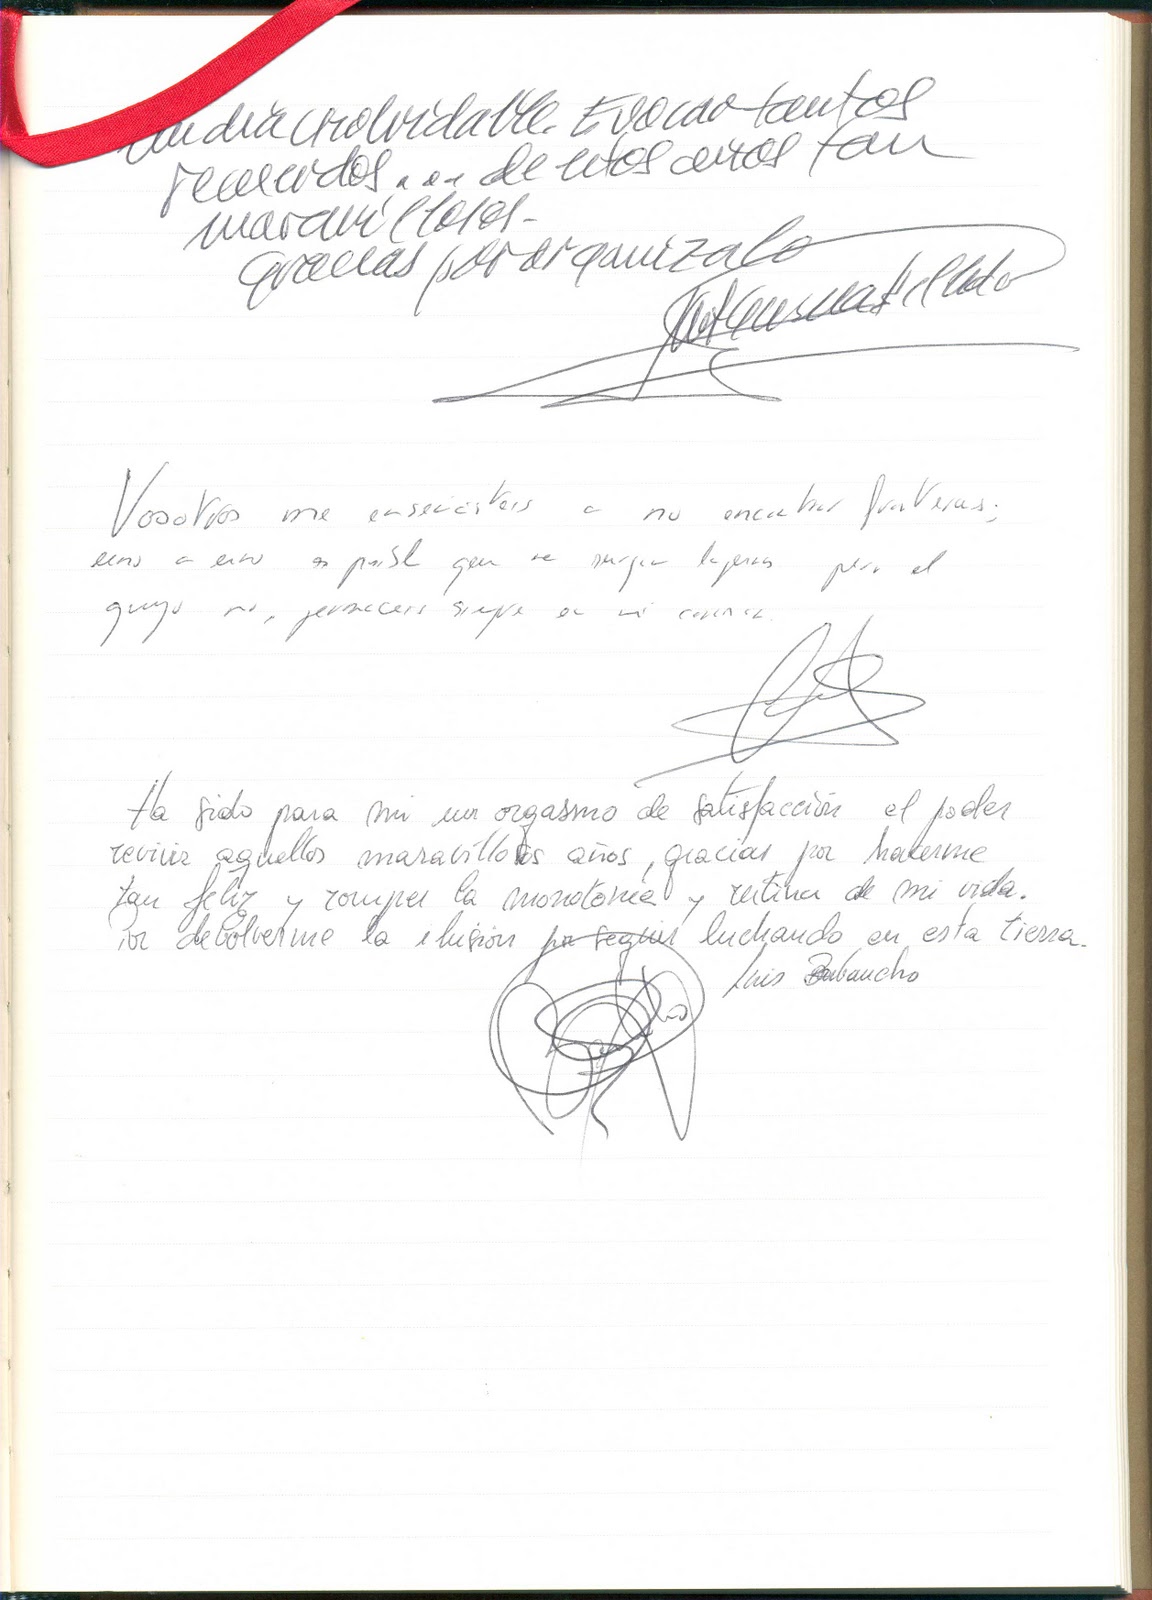 Un dia inolvidable. Evocar tantos
recuerdos... de estos años tan
maravillosos.
gracias por organizalo
Vosotros me enseñasteis a no encontrar fronteras;
uno a uno es posible que no surjan lagunas pero el
grupo no, permaneceis siempre en mi
Ha sido para mi un orgasmo de satisfacción el poder
revivir aquellos maravillosos años, gracias por hacerme
tan feliz y romper la monotonía y rutina de mi vida.
Por debolverme la ilusión por seguir luchando en esta tierra.
Luis